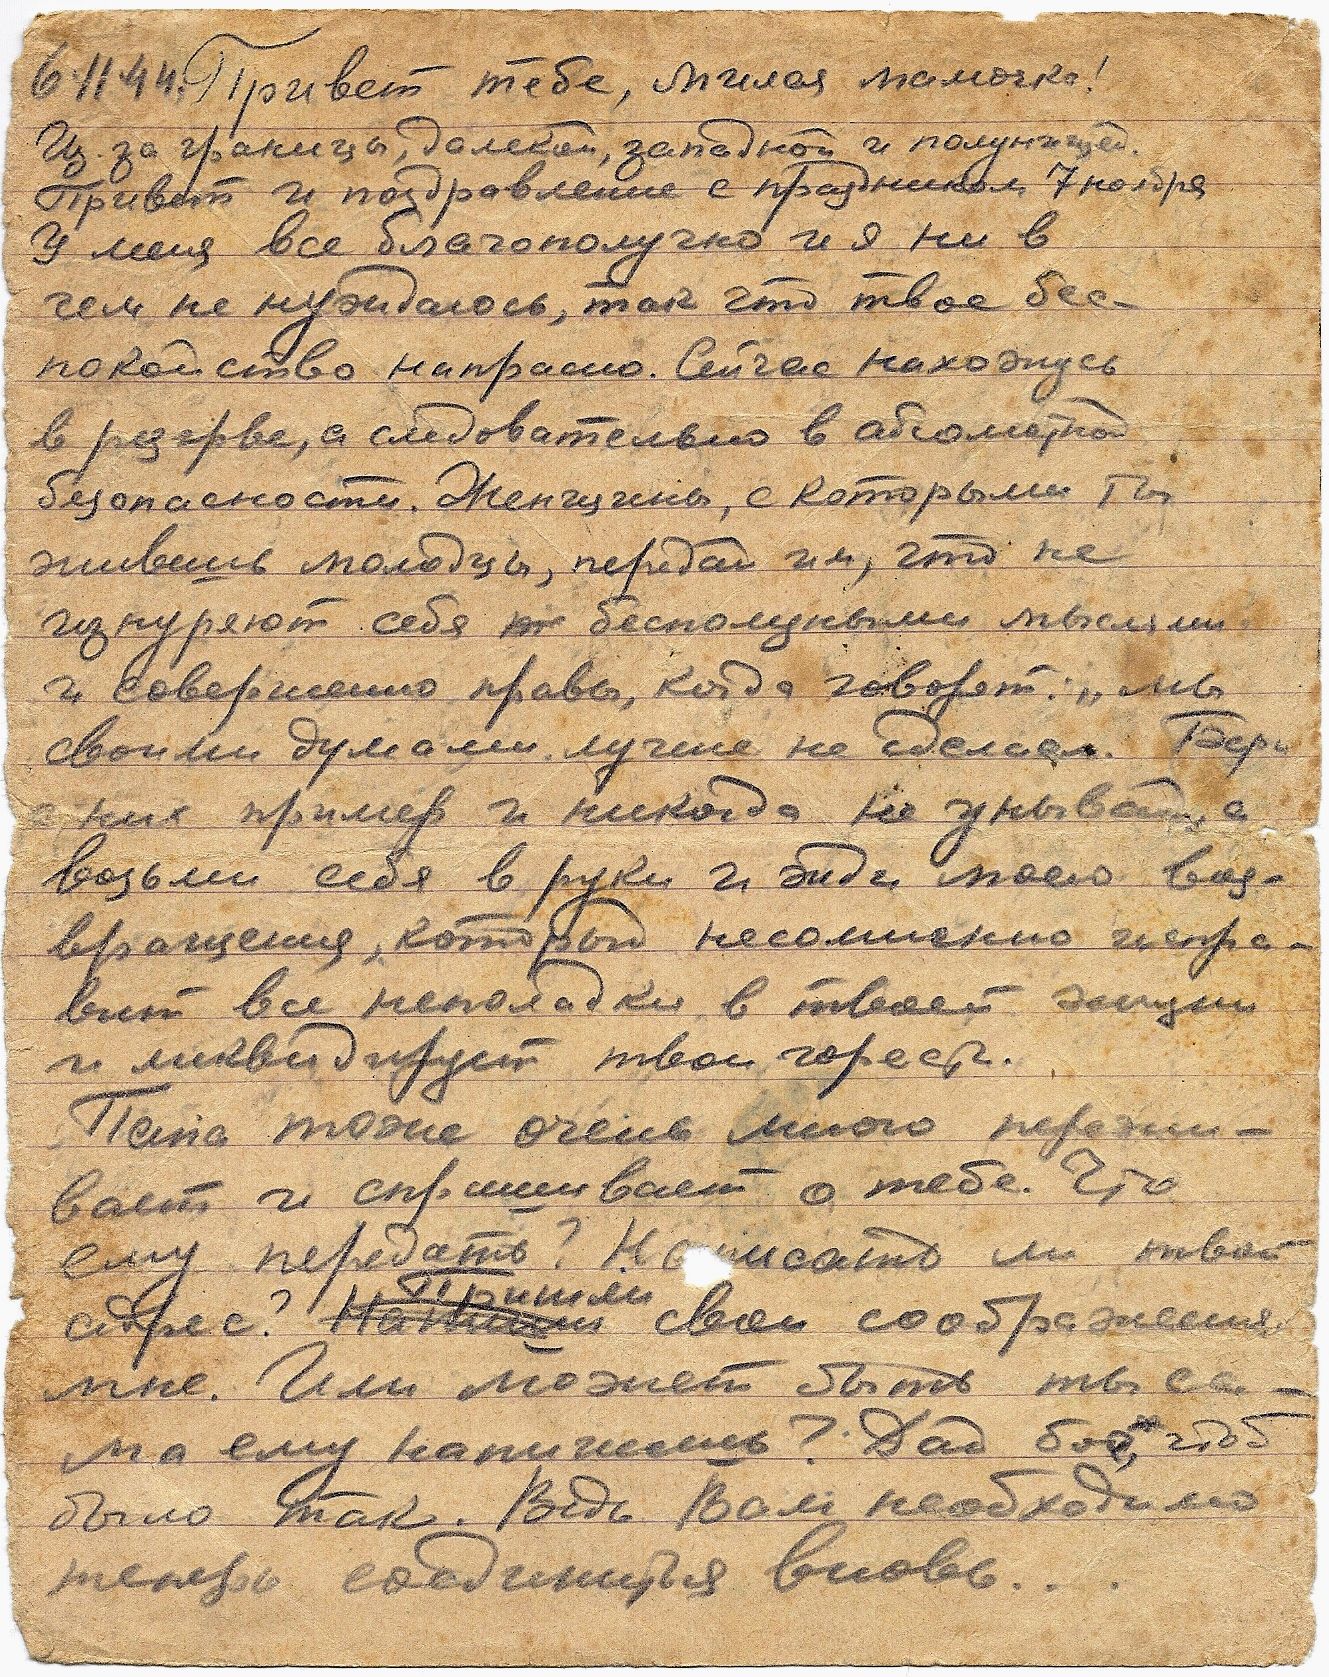 6.11.44. Привет тебе, милая мамочка!
Из-за границы, далекой, западной и полунищей.
Привет и поздравление с праздником 7 ноября
У меня все благополучно и я ни в
чем не нуждаюсь, так что твое бес-
покойство напрасно. Сейчас нахожусь
в резерве, а следовательно в абсолютной
безопасности. Женщины, с которыми ты
живешь молодцы, передай им, что не
изнуряют себя бесполезными мыслями
и совершенно правы, когда говорят: „мы
своими думами лучше не сделаем. Бери
с них пример и никогда не унывай, а
возьми себя в руки и жди моего воз-
вращения, который несомненно испра-
вит все неполадки в твоей жизни
и ликвидирует твои горести.
Папа тоже очень много пережи-
вает и спрашивает о тебе. Что
ему передать? Написать ли твой
адрес? Напиши Пришли свои соображения
мне. Или может быть ты са-
ма ему напишешь? Дай бог, чтоб
было так. Ведь Вам необходимо
теперь соединиться вновь...